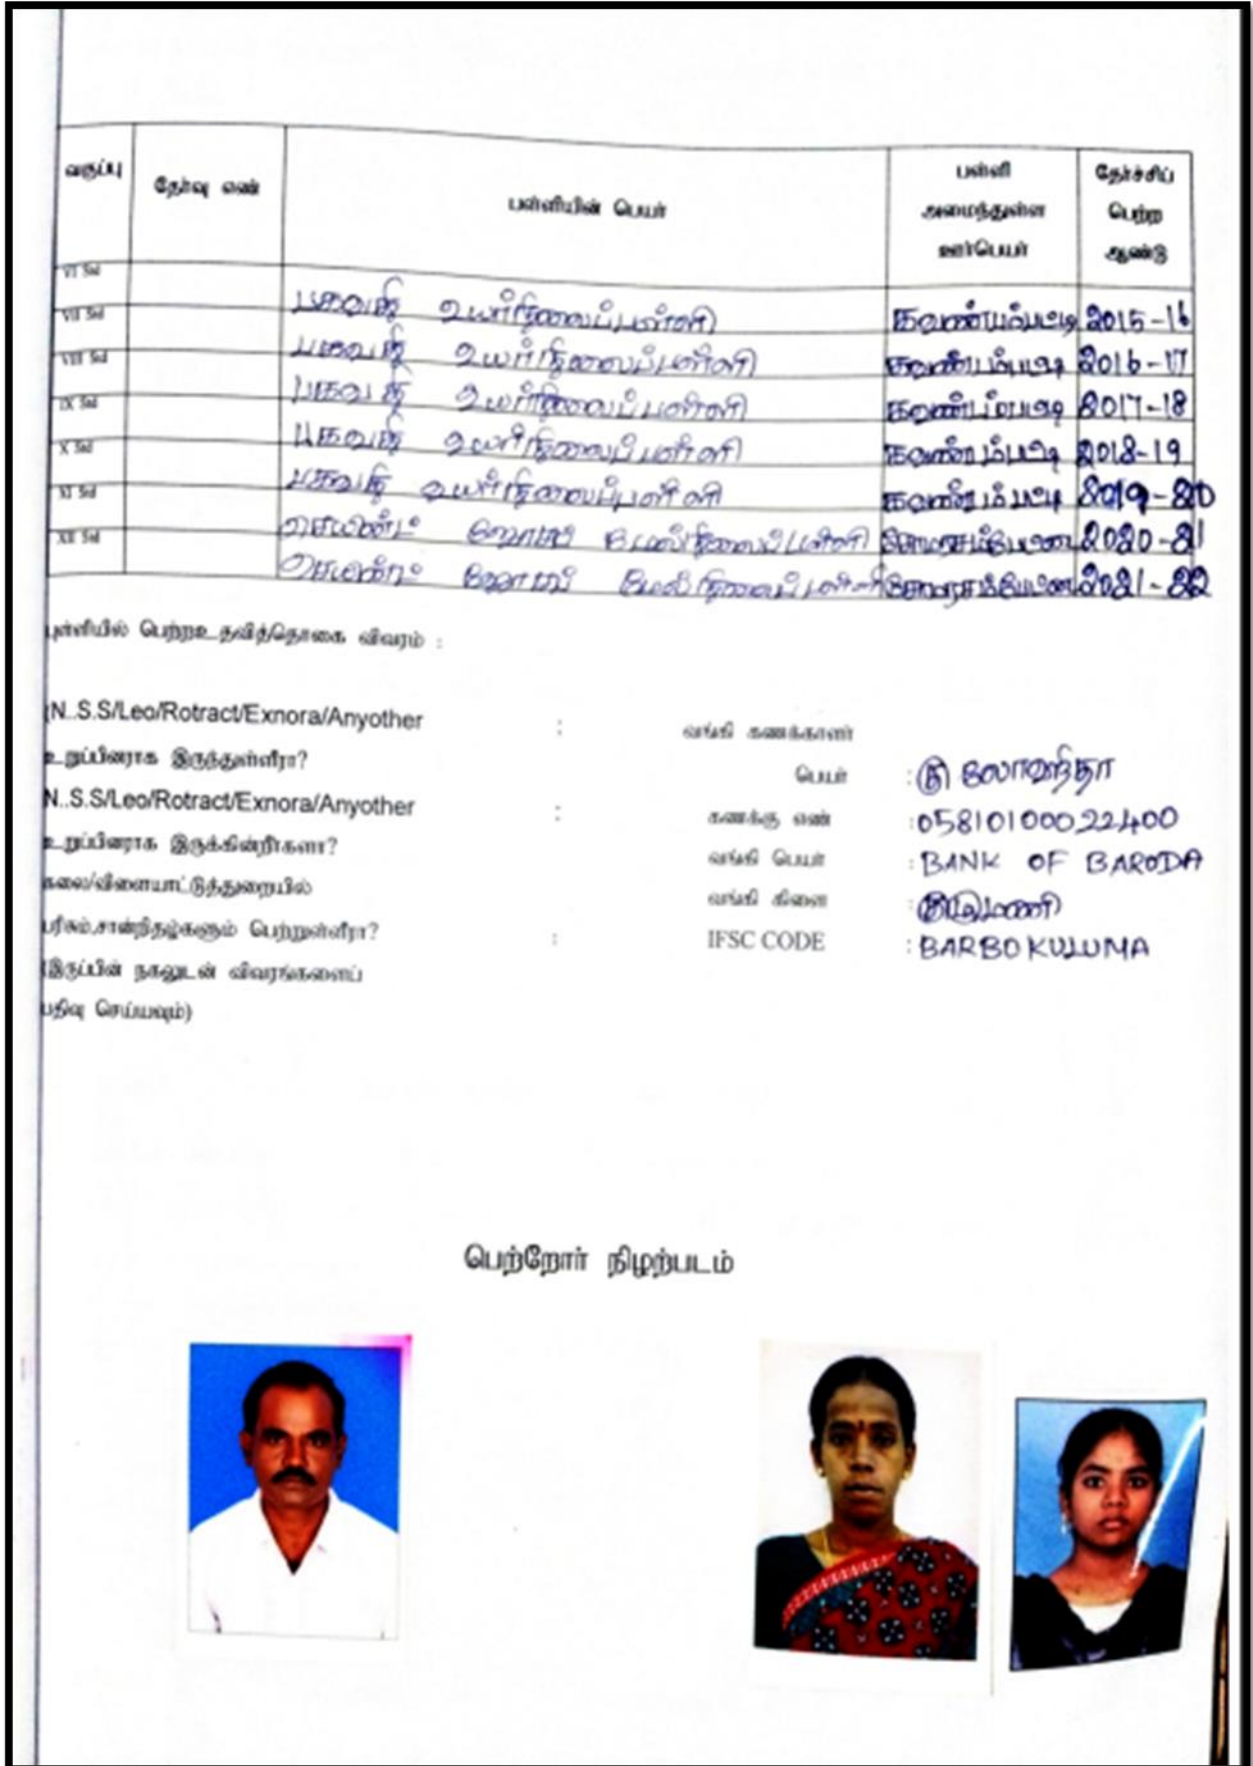 வகுப்பு தேர்வு எண் பள்ளியின் பெயர் பள்ளி அமைந்துள்ள ஊர்பெயர் தேர்ச்சிப் பெற்ற ஆண்டு
VI Std பகவதி உயர்நிலைப்பள்ளி 2015-16
VII Std பகவதி உயர்நிலைப்பள்ளி 2016-17
VIII Std பகவதி உயர்நிலைப்பள்ளி 2017-18
IX Std பகவதி உயர்நிலைப்பள்ளி 2018-19
X Std பகவதி உயர்நிலைப்பள்ளி 2019-20
XI Std மேல்நிலைப்பள்ளி 2020-21
XII Std மேல்நிலைப்பள்ளி 2021-22
பள்ளியில் பெற்றஉதவித்தொகை விவரம் :
(N..S.S/Leo/Rotract/Exnora/Anyother :
உறுப்பினராக இருந்துள்ளீரா?
N..S.S/Leo/Rotract/Exnora/Anyother :
உறுப்பினராக இருக்கின்றீர்களா?
கலை/விளையாட்டுத்துறையில்
பரிசும்,சான்றிதழ்களும் பெற்றுள்ளீரா? :
(இருப்பின் நகலுடன் விவரங்களைப்
பதிவு செய்யவும்)
வங்கி கணக்காளர்
பெயர் :
கணக்கு எண் : 05810100022400
வங்கி பெயர் : BANK OF BARODA
வங்கி கிளை :
IFSC CODE : BARBOKULUMA
பெற்றோர் நிழற்படம்